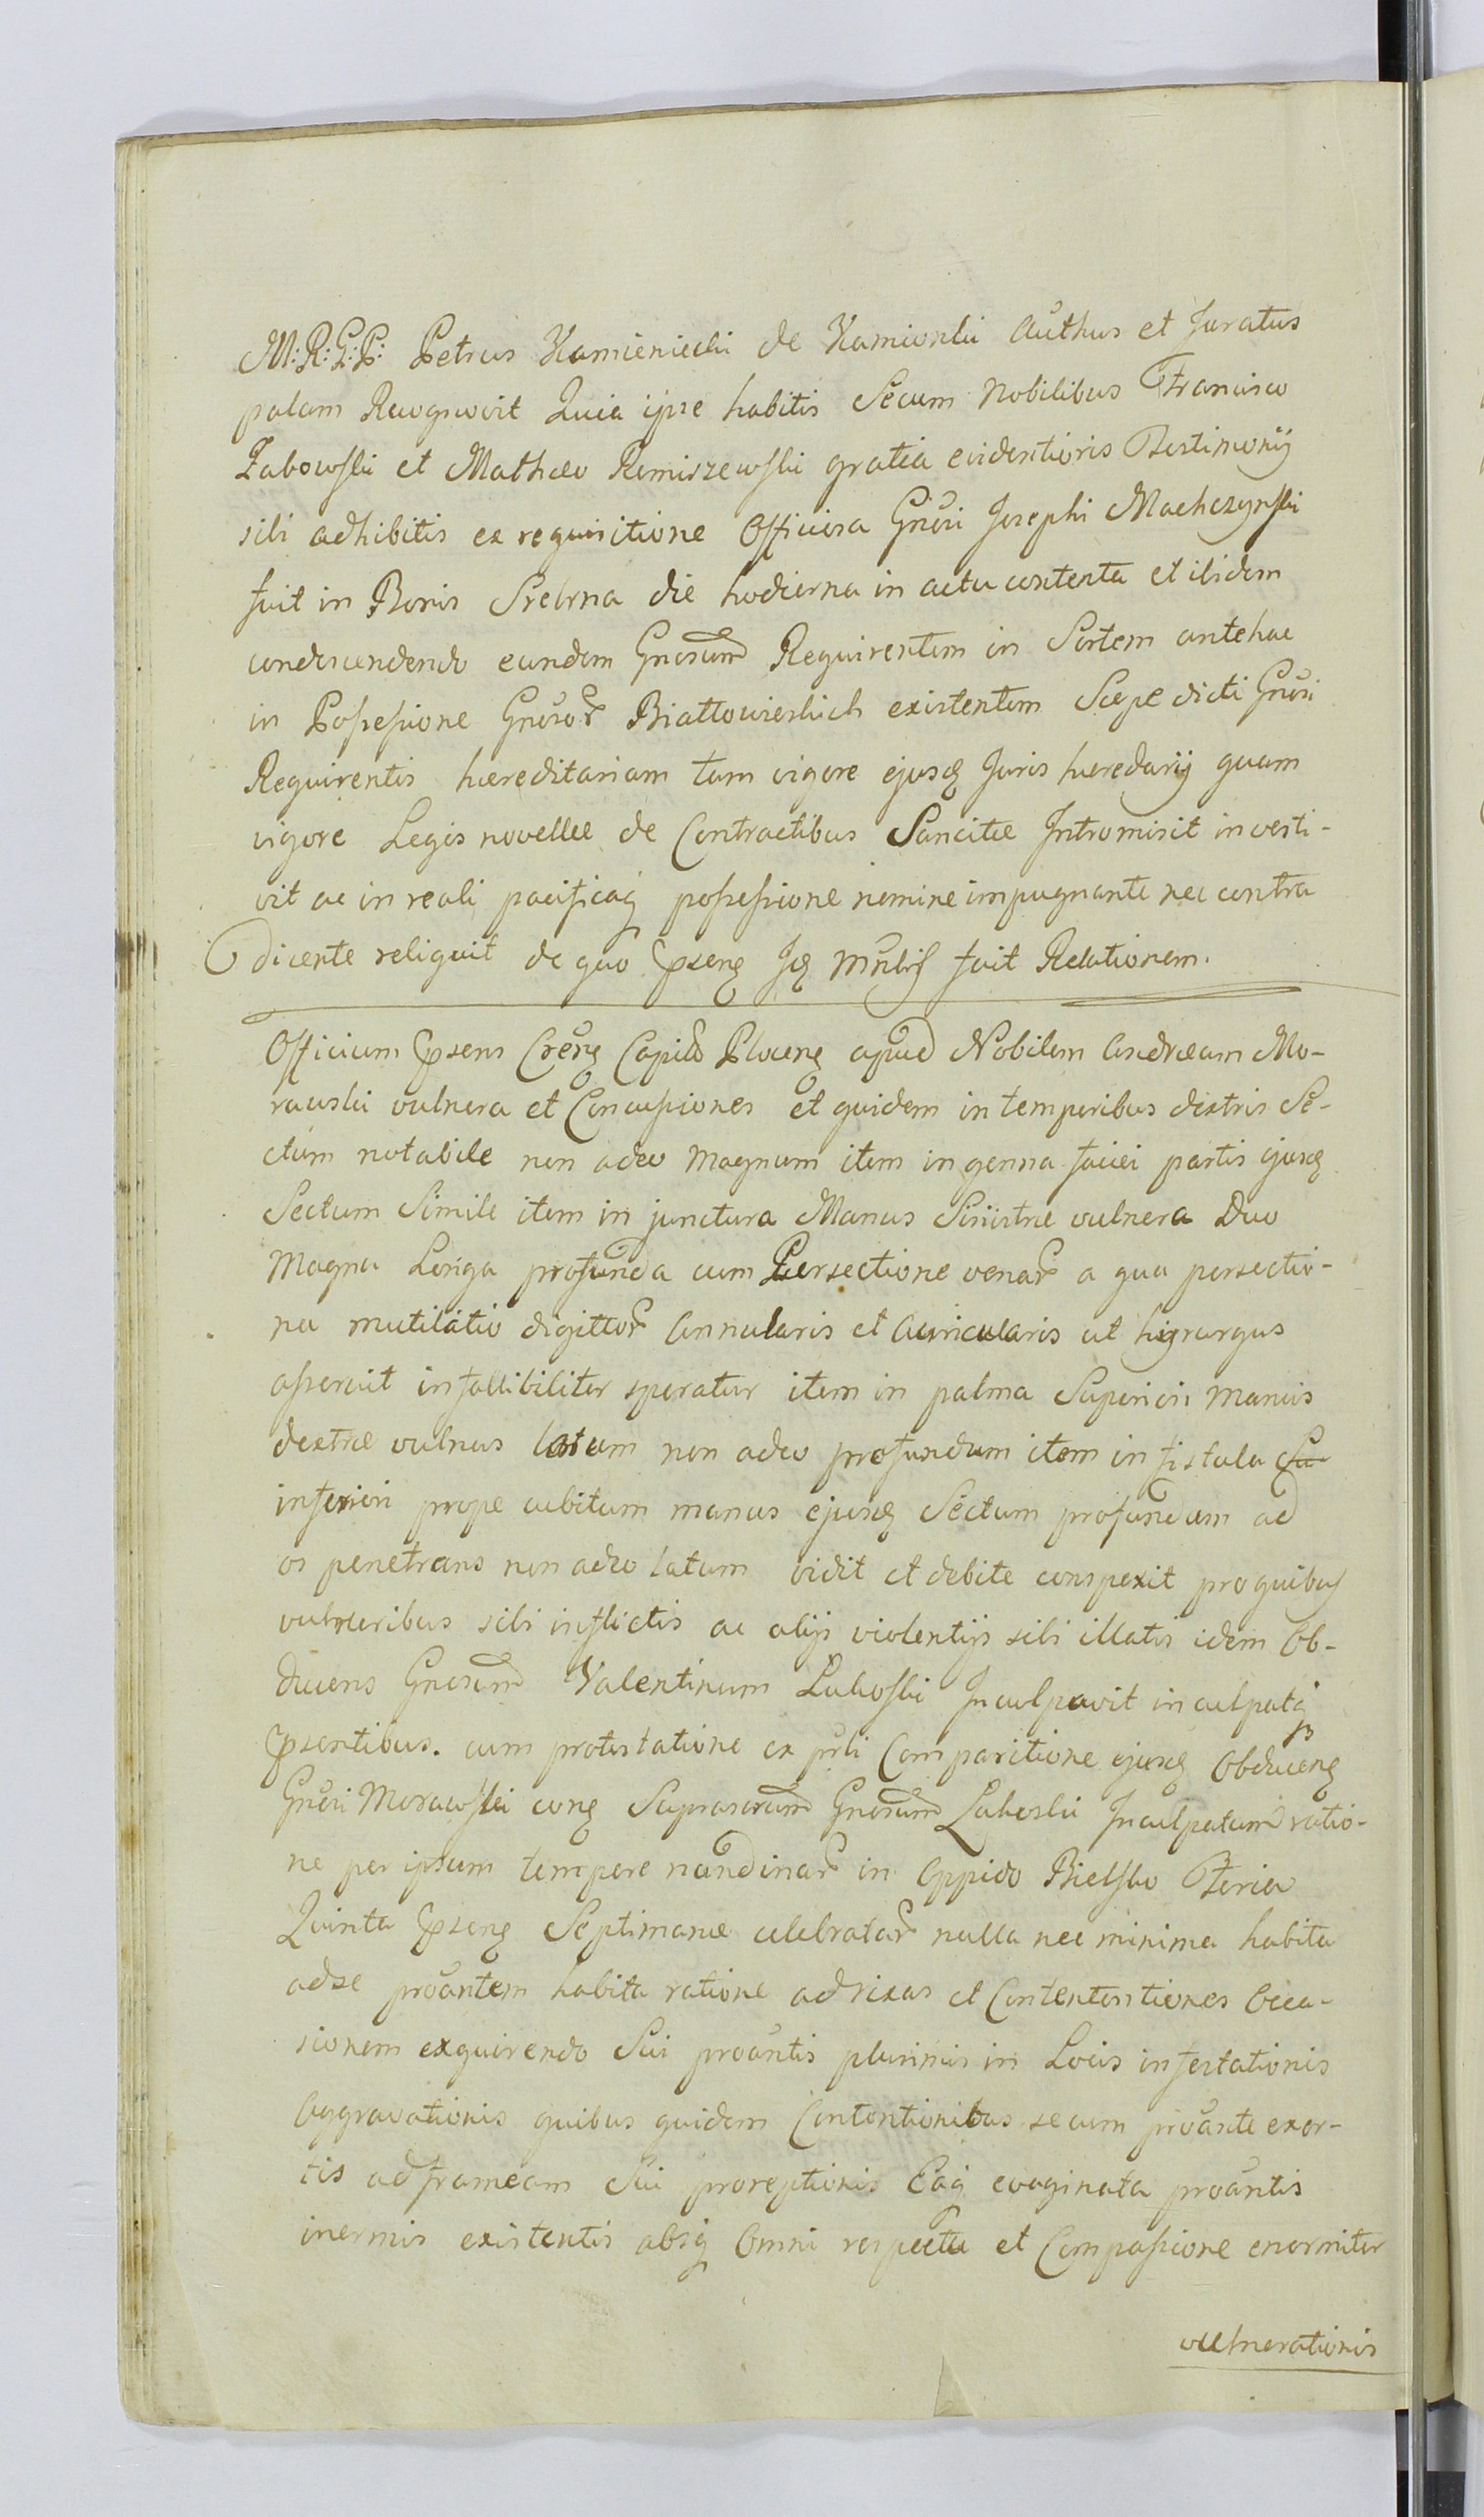 M: R: G: P: Petrus Kamieniecki de Kamionki Authus et Juratus
palam Recognovit Quia ipse habitis Secum Nobilibus Francisco
Zabowski et Mathaeo Remiszewski gratia evidentioris Testimonij
sibi adhibitis ex requisitione Officiosa Gnosi Josephi Machczynski
fuit in Bonis Srebrna die hodierna in actu contenta et ibidem
condescendendo eundem Gnosum Requirentem in Sortem antehac
in Possessione Gnosor Białłowieskich existentem Saepe dicti Gnosi
Requirentis haereditariam tam vigore ejusq Juris haeredarij quam
vigore Legis novellae de Contractibus Sancitae Intromisit investi-
vit ac in reali pacificaq possessione nemine impugnante nec contra
dicente reliquit de quo pseng Jq Mnlis fuit Relationem.
Officium psens Creng Capit Ploceng apud Nobilem Andraeam Mo-
rawski vulnera et Concussiones et quidem in temporibus dextris Se-
ctum notabile non adeo Magnum item in genna faciei partis ejusq
Sectum Simile item in junctura Manus Sinistrae vulnera Duo
Magna Longa profunda cum Persectione venar a qua persectio-
ne mutilatio digittor Annularis et Auricularis ut higrurgus
asseruit infallibiliter speratur item in palma Superiori Manus
dextrae vulnus latum non adeo profundum item in fistula Su
inferiori prope cubitum manus ejusq Sectum profundum ad
os penetrans non adeo latum vidit et debite conspexit pro quibus
vulneribus sibi inflictis ac alijs violentijs sibi illatis idem Ob-
ducens Gnosum Valentinum Lukoski Inculpavit inculpatq
psentibus. cum protestatione ex prli Comparitione ejusq Obduceng
Gnosi Morawski cong Suprascrum Gnosum Lukoski Inculpatum ratio-
ne per ipsum tempore nundinar in Oppido Bielsko Feria
Quinta pseng Septimanae celebratar nulla nec minima habita
ad se proantem habita ratione ad rixas et Contentontiones Occa-
sionem exquirendo Sui proantis plurimis in Locis infestationis
Aggravationis quibus quidem Contentionibus secum proante exor-
tis ad frameam Sui proreptionis Eaq evaginata proantis
inermis existentis absq Omni respectu et Compassione enormiter
vulnerationis